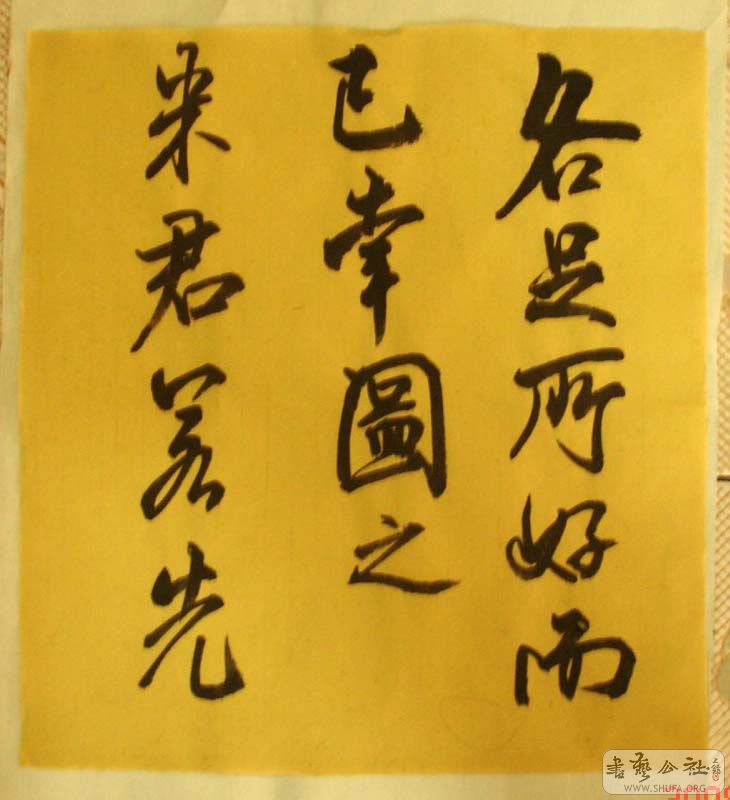 各足所好而
已幸圖之
米君若先
書藝公社
WWW.SHUFA.ORG